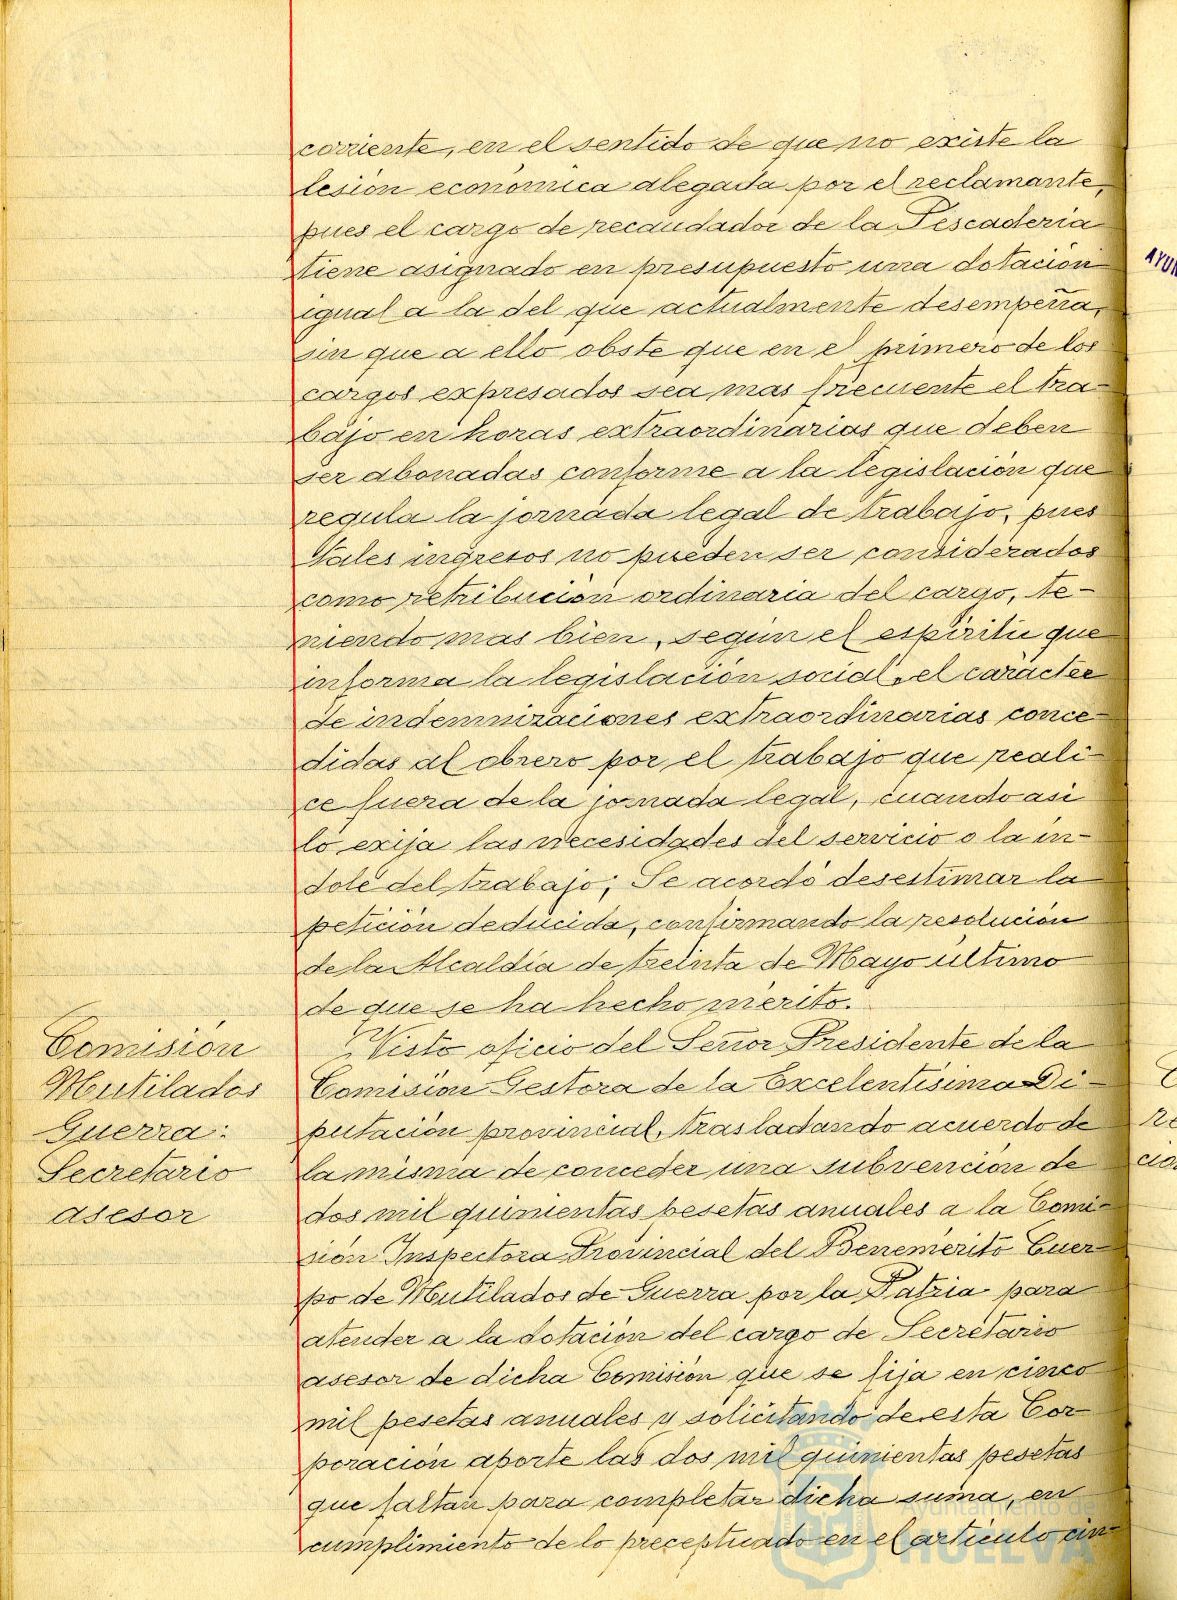 corriente, en el sentido de que no existe la
lesión económica alegada por el reclamante,
pues el cargo de recaudador de la Pescadería
tiene asignado en presupuesto una dotación
igual a la del que actualmente desempeña,
sin que a ello obste que en el primero de los
cargos expresados sea mas frecuente el tra-
bajo en horas extraordinarias que deben
ser abonadas conforme a la legislación que
regula la jornada legal de trabajo, pues
tales ingresos no pueden ser considerados
como retribución ordinaria del cargo, te-
niendo mas bien, según el espíritu que
informa la legislación social, el carácter
de indemnizaciones extraordinarias conce-
didas al obrero por el trabajo que reali-
ce fuera de la jornada legal, cuando asi
lo exija las necesidades del servicio o la ín-
dole del trabajo; Se acordó desestimar la
petición deducida, confirmando la resolución
de la Alcaldía de treinta de Mayo último
de que se ha hecho mérito.
Comisión
Mutilados
Guerra:
Secretario
asesor
Visto oficio del Señor Presidente de la
Comisión Gestora de la Excelentísima Di-
putación provincial, trasladando acuerdo de
la misma de conceder una subvención de
dos mil quinientas pesetas anuales a la Comi-
sión Inspectora Provincial del Benemérito Cuer-
po de Mutilados de Guerra por la Patria para
atender a la dotación del cargo de Secretario
asesor de dicha Comisión que se fija en cinco
mil pesetas anuales y solicitando de esta Cor-
poración aporte las dos mil quinientas pesetas
que faltan para completar dicha suma, en
cumplimiento de lo preceptuado en el artículo cin-
Ayuntamiento de
HUELVA
AYUN